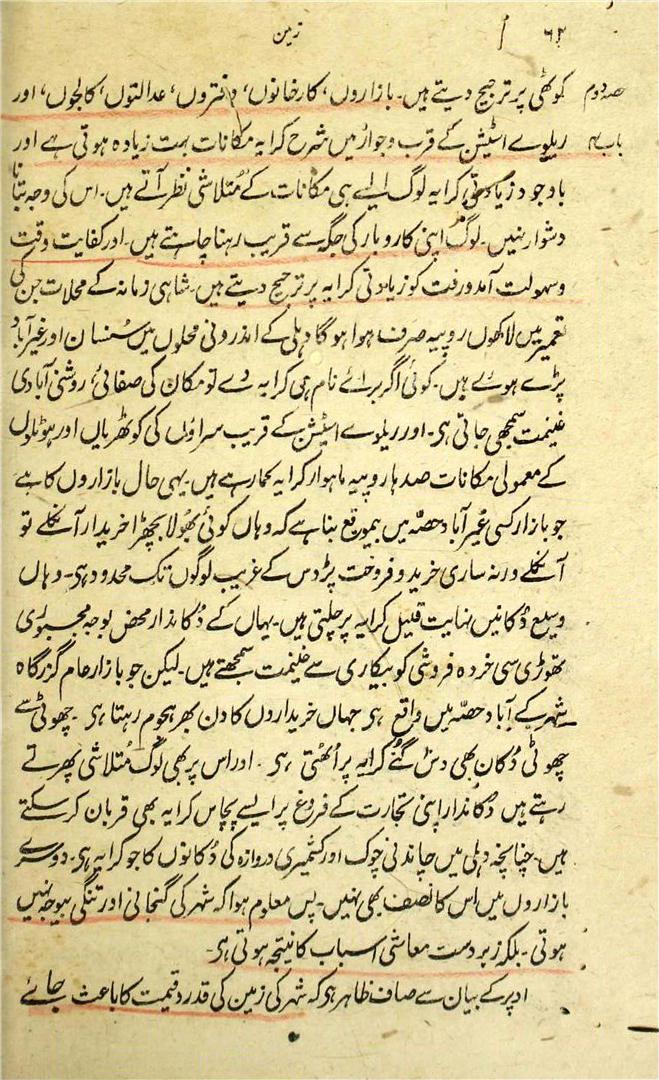 ۶۲
زمین
حصہ دوم
باب ہم
کوٹھی پر ترجیح دیتے ہیں۔ بازاروں، کارخانوں، دفتروں، عدالتوں، کالجوں، اور
ریلوے اسٹیشن کے قرب وجوار میں شرح کرایہ مکانات بہت زیادہ ہوتی ہے اور
باوجود زیادتی کرایہ لوگ ایسے ہی مکانات کے مُتلاشی نظر آتے ہیں۔ اس کی وجہ بتانا
دشوار نہیں۔ لوگ اپنی کاروبار کی جگہ سے قریب رہنا چاہتے ہیں۔ اور کفایت وقت
وسہولت آمدورفت کو زیادتی کرایہ پر ترجیح دیتے ہیں۔ شاہی زمانہ کے محلات جن کی
تعمیر میں لاکھوں روپیہ صرف ہوا ہوگا دہلی کے اندرونی محلوں میں سُنسان اور غیر آباد
پڑے ہوئے ہیں۔ کوئی اگر برائے نام ہی کرایہ دے تو مکان کی صفائی، روشنی آبادی
غنیمت سمجھی جاتی ہی۔ اور ریلوے اسٹیشن کے قریب سراؤں کی کوٹھریاں اور ہوٹلوں
کے معمولی مکانات صدہا روپیہ ماہوار کرایہ کمارہے ہیں۔ یہی حال بازاروں کا ہے
جو بازار کسی غیر آباد حصہ میں بیموقع بنا ہے کہ وہاں کوئی بھُولا بچھڑا خریدار آنکلے تو
آنکلے ورنہ ساری خرید و فروخت پڑوس کے غریب لوگوں تک محدود ہی۔ وہاں
وسیع دُکانیں نہایت قلیل کرایہ پر چلتی ہیں۔ یہاں کے دُکاندار محض بوجہ مجبوری
تھوڑی سی خردہ فروشی کو بیکاری سے غنیمت سمجھتے ہیں۔ لیکن جو بازار عام گزرگاہ
شہر کے آباد حصہ میں واقع ہی جہاں خریداروں کا دن بھر ہجوم رہتا ہی۔ چھوٹی سے
چھوٹی دُکان بھی دس گُنے کرایہ پر اُٹھتی ہی۔ اور اس پر بھی لوگ مُتلاشی پھرتے
رہتے ہیں دُکاندار اپنی تجارت کے فروغ پر ایسے پچاس کرایہ بھی قربان کرسکتے
ہیں۔ چنانچہ دہلی میں چاندنی چوک اور کشمیری دروازہ کی دُکانوں کا جو کرایہ ہی۔ دوسرے
بازاروں میں اس کا نصف بھی نہیں۔ پس معلوم ہوا کہ شہر کی گنجانی اور تنگی بیوجہ نہیں
ہوتی۔ بلکہ زبردست معاشی اسباب کا نتیجہ ہوتی ہی۔
اوپر کے بیان سے صاف ظاہر ہی کہ شہر کی زمین کی قدر و قیمت کا باعث جائے